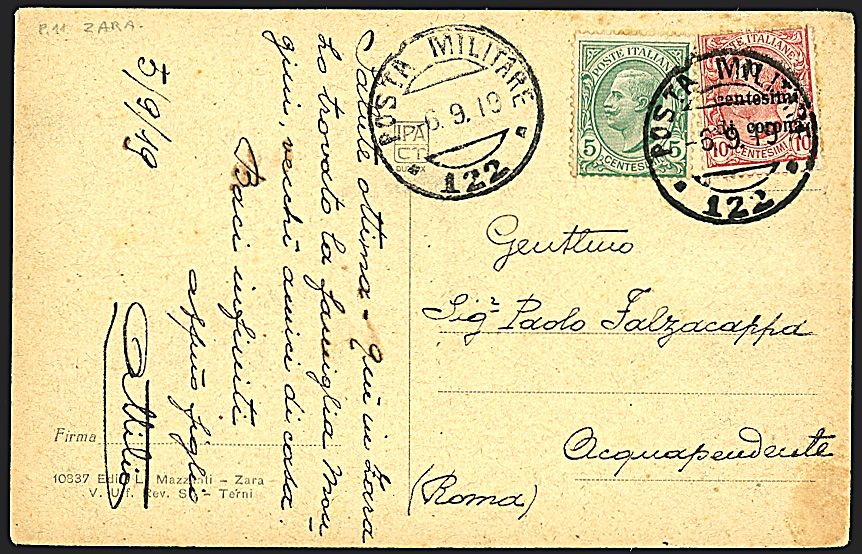 P.M ZARA.
5/9/19
Salute ottima - Qui in Zara
ho trovato la famiglia Mon
gini, vecchi amici di casa.
Baci infiniti
affmo figlio
Attilio
Firma
10837 Ediz. L. Mazzoni – Zara
V. Uff. Rev. St. – Terni
POSTA MILITARE
6.9.19
122
IPA
CT
POSTE ITALIANE
5 5
CENTESIMI
POSTE ITALIANE
centesimi
di corona
10 10
CENTESIMI
POSTA MILITARE
-6.9.19
122
Genttmo
Sigr Paolo Falzacappa
Acquapendente
(Roma)